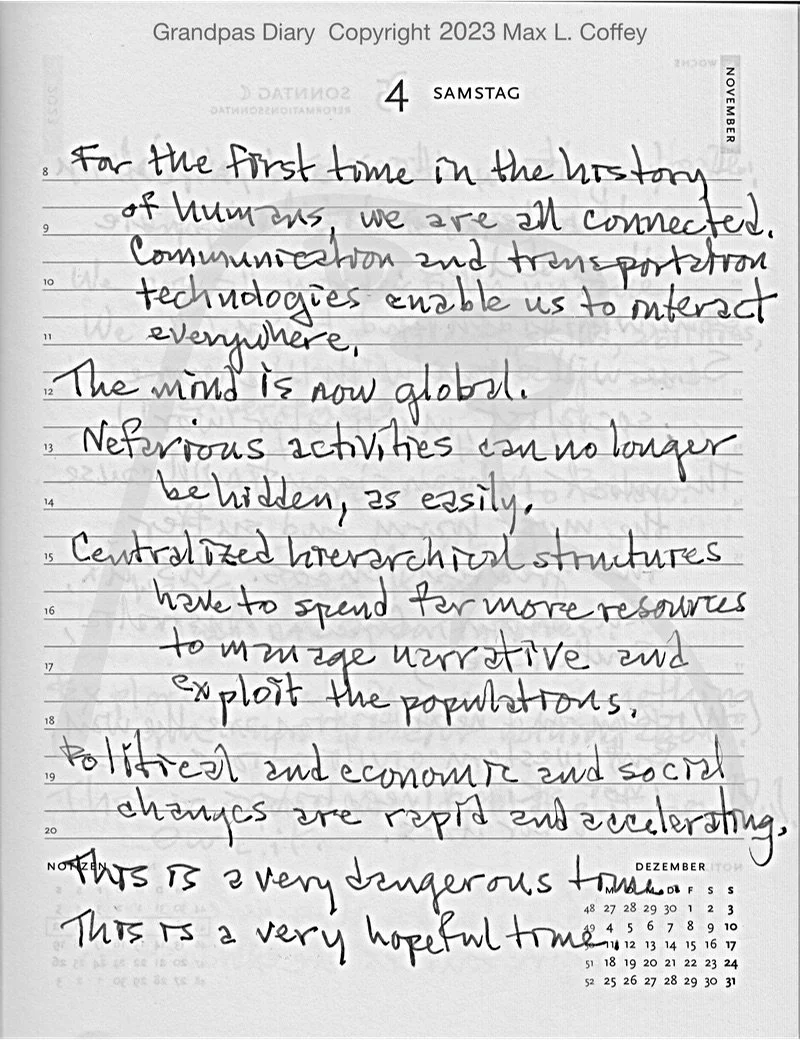 Grandpas Diary Copyright 2023 Max L. Coffey
4 SAMSTAG
NOVEMBER
8 For the first time in the history
9 of humans, we are all connected.
Communication and transportation
10 technologies enable us to interact
11 everywhere.
12 The mind is now global.
13 Nefarious activities can no longer
14 be hidden, as easily.
15 Centralized hierarchical structures
16 have to spend far more resources
17 to manage narrative and
exploit the populations.
18
19 Political and economic and social
20 changes are rapid and accelerating.
NOTIZEN
This is a very dangerous time.
This is a very hopeful time.
DEZEMBER
M D M D F S S
48 27 28 29 30 1 2 3
49 4 5 6 7 8 9 10
11 12 13 14 15 16 17
51 18 19 20 21 22 23 24
52 25 26 27 28 29 30 31